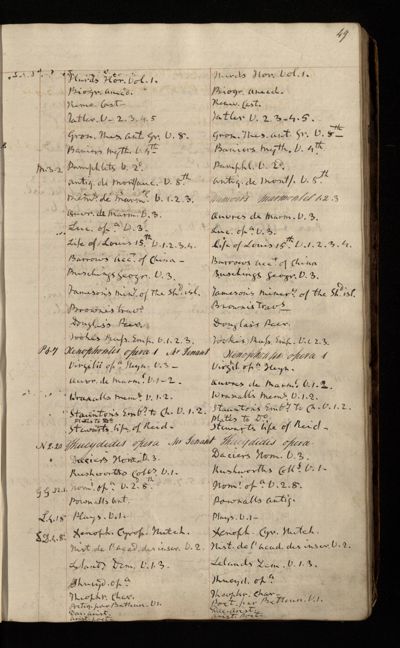 49
Hurds Hor. Vol. 1. Hurds Hor. Vol. 1.
Biogr. anecd. Biogr. anecd.
Tatler V. 2. 3. 4. 5 Tatler V. 2. 3. 4. 5.
Gron. Thes. ant. Gr. V. 8. Gron. Thes. ant. Gr. V. 8th
Baniers Myth. V. 4th Baniers Myth. V. 4th
M.3-2 Pamphlets V. 2d. Pamphl. V. 2d.
antiq. de Montfauc. V. 5th antiq. de Montf. V. 5th
Mems. de Marml. V. 1. 2. 3. 1. 2. 3
Œuvr. de Marm. V. 3. Œuvres de Marm. V. 3.
Luc. opa V. 3. Luc. opa V. 3.
Life of Louis 15th V. 1. 2. 3. 4. Life of Louis 15th V. 1. 2. 3. 4.
Barrows acct. of China - Barrows acct. of China
Buschings Geogr. V. 3. Buschings Geogr. V. 3.
Jamesons Miner. of the Shd. isl. Jamesons Minery. of the Shd. isl.
Brownes travs Brownes travs
Douglass Peer. Douglass Peer.
Tookes Russ. Emp. V. 1. 2. 3. Tookes Russ. Emp. V. 1. 2. 3.
Xenophontis opera 1 Mr Tenant Xenophontis opera 1
Virgilii opa Heyn. V. 3 - Virgil opa Heyn.
Œuvr. de Marml. V. 1 - 2. Œuvres de Marml. V. 1. 2.
Wraxalls Mems. V. 1. 2. Wraxalls Mems. V. 1. 2.
Stauntons Emby. to Ch. V. 1. 2. Stauntons Emby. to Ch. V. 1. 2.
Plates to Do. Plates to Do.
Stewarts life of Reid - Stewarts life of Reid -
N 2.20 Thucydides opera Mr Tenant Thucydides opera
Daciers Hora. V. 3. Daciers Hom. V. 3.
Rushworths Colls. V. 1 - Rushworths Coll. V. 1 -
Homi. opa V. 2. 8th. Homi. opa V. 2. 8.
Pownalls ant. Pownalls antiq.
Plays. V. 1 - Plays. V. 1 -
Xenoph. Cyrop. Hutch. Xenoph. Cyr. Hutch.
Hist. de l'acad. des inscr. V. 2. Hist. de l'acad. des inscr. V. 2.
Leland Dem. V. 1. 3. Lelands Dem. V. 1. 3.
Thucyd. opa Thucyd. opa
Theophr. Char. Theophr. Char -